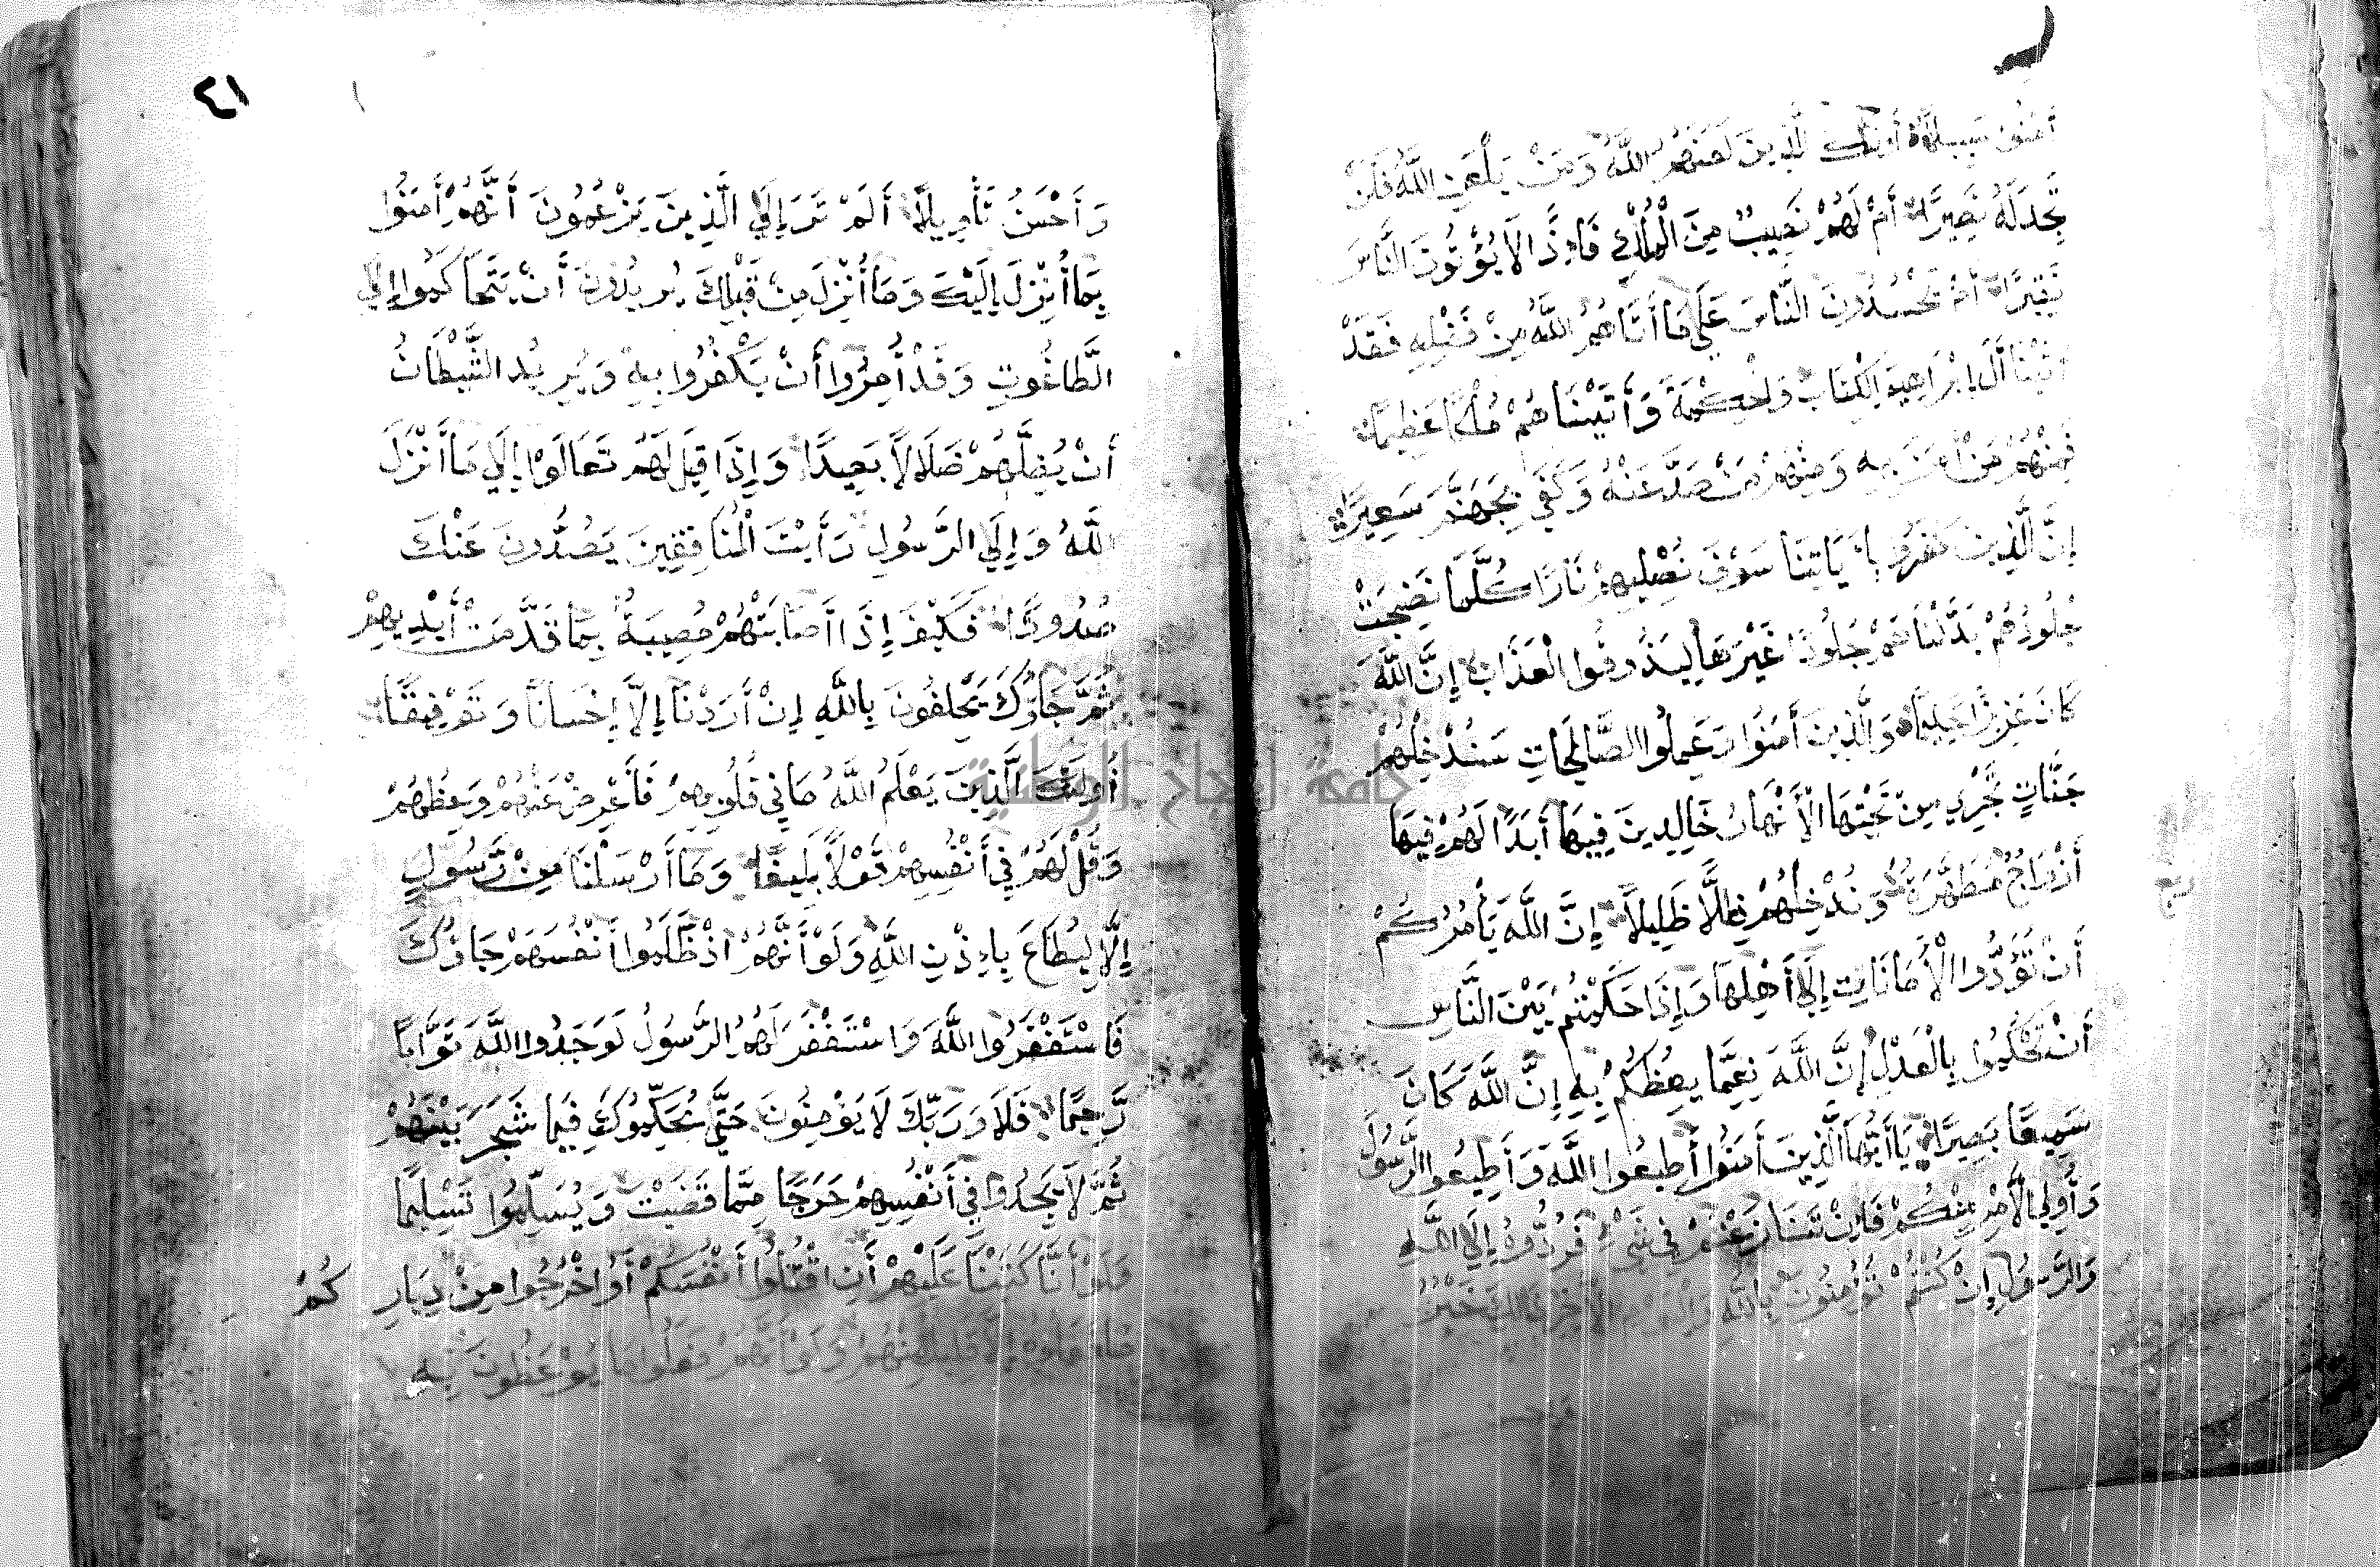 أَمَنُوا سَبِيلًا أُولَئِكَ الَّذِينَ لَعَنَهُمُ اللَّهُ وَمَنْ يَلْعَنِ اللَّهُ فَلَنْ
تَجِدَ لَهُ نَصِيرًا أَمْ لَهُمْ نَصِيبٌ مِنَ الْمُلْكِ فَإِذًا لَا يُؤْتُونَ النَّاسَ
نَقِيرًا أَمْ يَحْسُدُونَ النَّاسَ عَلَى مَا أَتَاهُمُ اللَّهُ مِنْ فَضْلِهِ فَقَدْ
أَتَيْنَا آلَ إِبْرَاهِيمَ الْكِتَابَ وَالْحِكْمَةَ وَأَتَيْنَاهُمْ مُلْكًا عَظِيمًا
فَمِنْهُمْ مَنْ أَمَنَ بِهِ وَمِنْهُمْ مَنْ صَدَّ عَنْهُ وَكَفَى بِجَهَنَّمَ سَعِيرًا
إِنَّ الَّذِينَ كَفَرُوا بِأَيَاتِنَا سَوْفَ نُصْلِيهِمْ نَارًا كُلَّمَا نَضِجَتْ
جُلُودُهُمْ بَدَّلْنَاهُمْ جُلُودًا غَيْرَهَا لِيَذُوقُوا الْعَذَابَ إِنَّ اللَّهَ
كَانَ عَزِيزًا حَكِيمًا وَالَّذِينَ أَمَنُوا وَعَمِلُوا الصَّالِحَاتِ سَنُدْخِلُهُمْ
جَنَّاتٍ تَجْرِي مِنْ تَحْتِهَا الْأَنْهَارُ خَالِدِينَ فِيهَا أَبَدًا لَهُمْ فِيهَا
أَزْوَاجٌ مُطَهَّرَةٌ وَنُدْخِلُهُمْ ظِلًّا ظَلِيلًا إِنَّ اللَّهَ يَأْمُرُكُمْ
ربع
أَنْ تُؤَدُّوا الْأَمَانَاتِ إِلَى أَهْلِهَا وَإِذَا حَكَمْتُمْ بَيْنَ النَّاسِ
أَنْ تَحْكُمُوا بِالْعَدْلِ إِنَّ اللَّهَ نِعِمَّا يَعِظُكُمْ بِهِ إِنَّ اللَّهَ كَانَ
سَمِيعًا بَصِيرًا يَا أَيُّهَا الَّذِينَ أَمَنُوا أَطِيعُوا اللَّهَ وَأَطِيعُوا الرَّسُولَ
وَأُولِي الْأَمْرِ مِنْكُمْ فَإِنْ تَنَازَعْتُمْ فِي شَيْءٍ فَرُدُّوهُ إِلَى اللَّهِ
وَالرَّسُولِ إِنْ كُنْتُمْ تُؤْمِنُونَ بِاللَّهِ وَالْيَوْمِ الْأَخِرِ ذَلِكَ خَيْرٌ
٤١
وَأَحْسَنُ تَأْوِيلًا أَلَمْ تَرَ إِلَى الَّذِينَ يَزْعُمُونَ أَنَّهُمْ أَمَنُوا
بِمَا أُنْزِلَ إِلَيْكَ وَمَا أُنْزِلَ مِنْ قَبْلِكَ يُرِيدُونَ أَنْ يَتَحَاكَمُوا إِلَى
الطَّاغُوتِ وَقَدْ أُمِرُوا أَنْ يَكْفُرُوا بِهِ وَيُرِيدُ الشَّيْطَانُ
أَنْ يُضِلَّهُمْ ضَلَالًا بَعِيدًا وَإِذَا قِيلَ لَهُمْ تَعَالَوْا إِلَى مَا أَنْزَلَ
اللَّهُ وَإِلَى الرَّسُولِ رَأَيْتَ الْمُنَافِقِينَ يَصُدُّونَ عَنْكَ
صُدُودًا فَكَيْفَ إِذَا أَصَابَتْهُمْ مُصِيبَةٌ بِمَا قَدَّمَتْ أَيْدِيهِمْ
ثُمَّ جَاؤُكَ يَحْلِفُونَ بِاللَّهِ إِنْ أَرَدْنَا إِلَّا إِحْسَانًا وَتَوْفِيقًا
أُولَئِكَ الَّذِينَ يَعْلَمُ اللَّهُ مَا فِي قُلُوبِهِمْ فَأَعْرِضْ عَنْهُمْ وَعِظْهُمْ
وَقُلْ لَهُمْ فِي أَنْفُسِهِمْ قَوْلًا بَلِيغًا وَمَا أَرْسَلْنَا مِنْ رَسُولٍ
إِلَّا لِيُطَاعَ بِإِذْنِ اللَّهِ وَلَوْ أَنَّهُمْ إِذْ ظَلَمُوا أَنْفُسَهُمْ جَاؤُكَ
فَاسْتَغْفَرُوا اللَّهَ وَاسْتَغْفَرَ لَهُمُ الرَّسُولُ لَوَجَدُوا اللَّهَ تَوَّابًا
رَّحِيمًا فَلَا وَرَبِّكَ لَا يُؤْمِنُونَ حَتَّى يُحَكِّمُوكَ فِيمَا شَجَرَ بَيْنَهُمْ
ثُمَّ لَا يَجِدُوا فِي أَنْفُسِهِمْ حَرَجًا مِمَّا قَضَيْتَ وَيُسَلِّمُوا تَسْلِيمًا
وَلَوْ أَنَّا كَتَبْنَا عَلَيْهِمْ أَنِ اقْتُلُوا أَنْفُسَكُمْ أَوِ اخْرُجُوا مِنْ دِيَارِكُمْ
مَا فَعَلُوهُ إِلَّا قَلِيلٌ مِنْهُمْ وَلَوْ أَنَّهُمْ فَعَلُوا مَا يُوعَظُونَ بِهِ
جامعة النجاح الوطنية